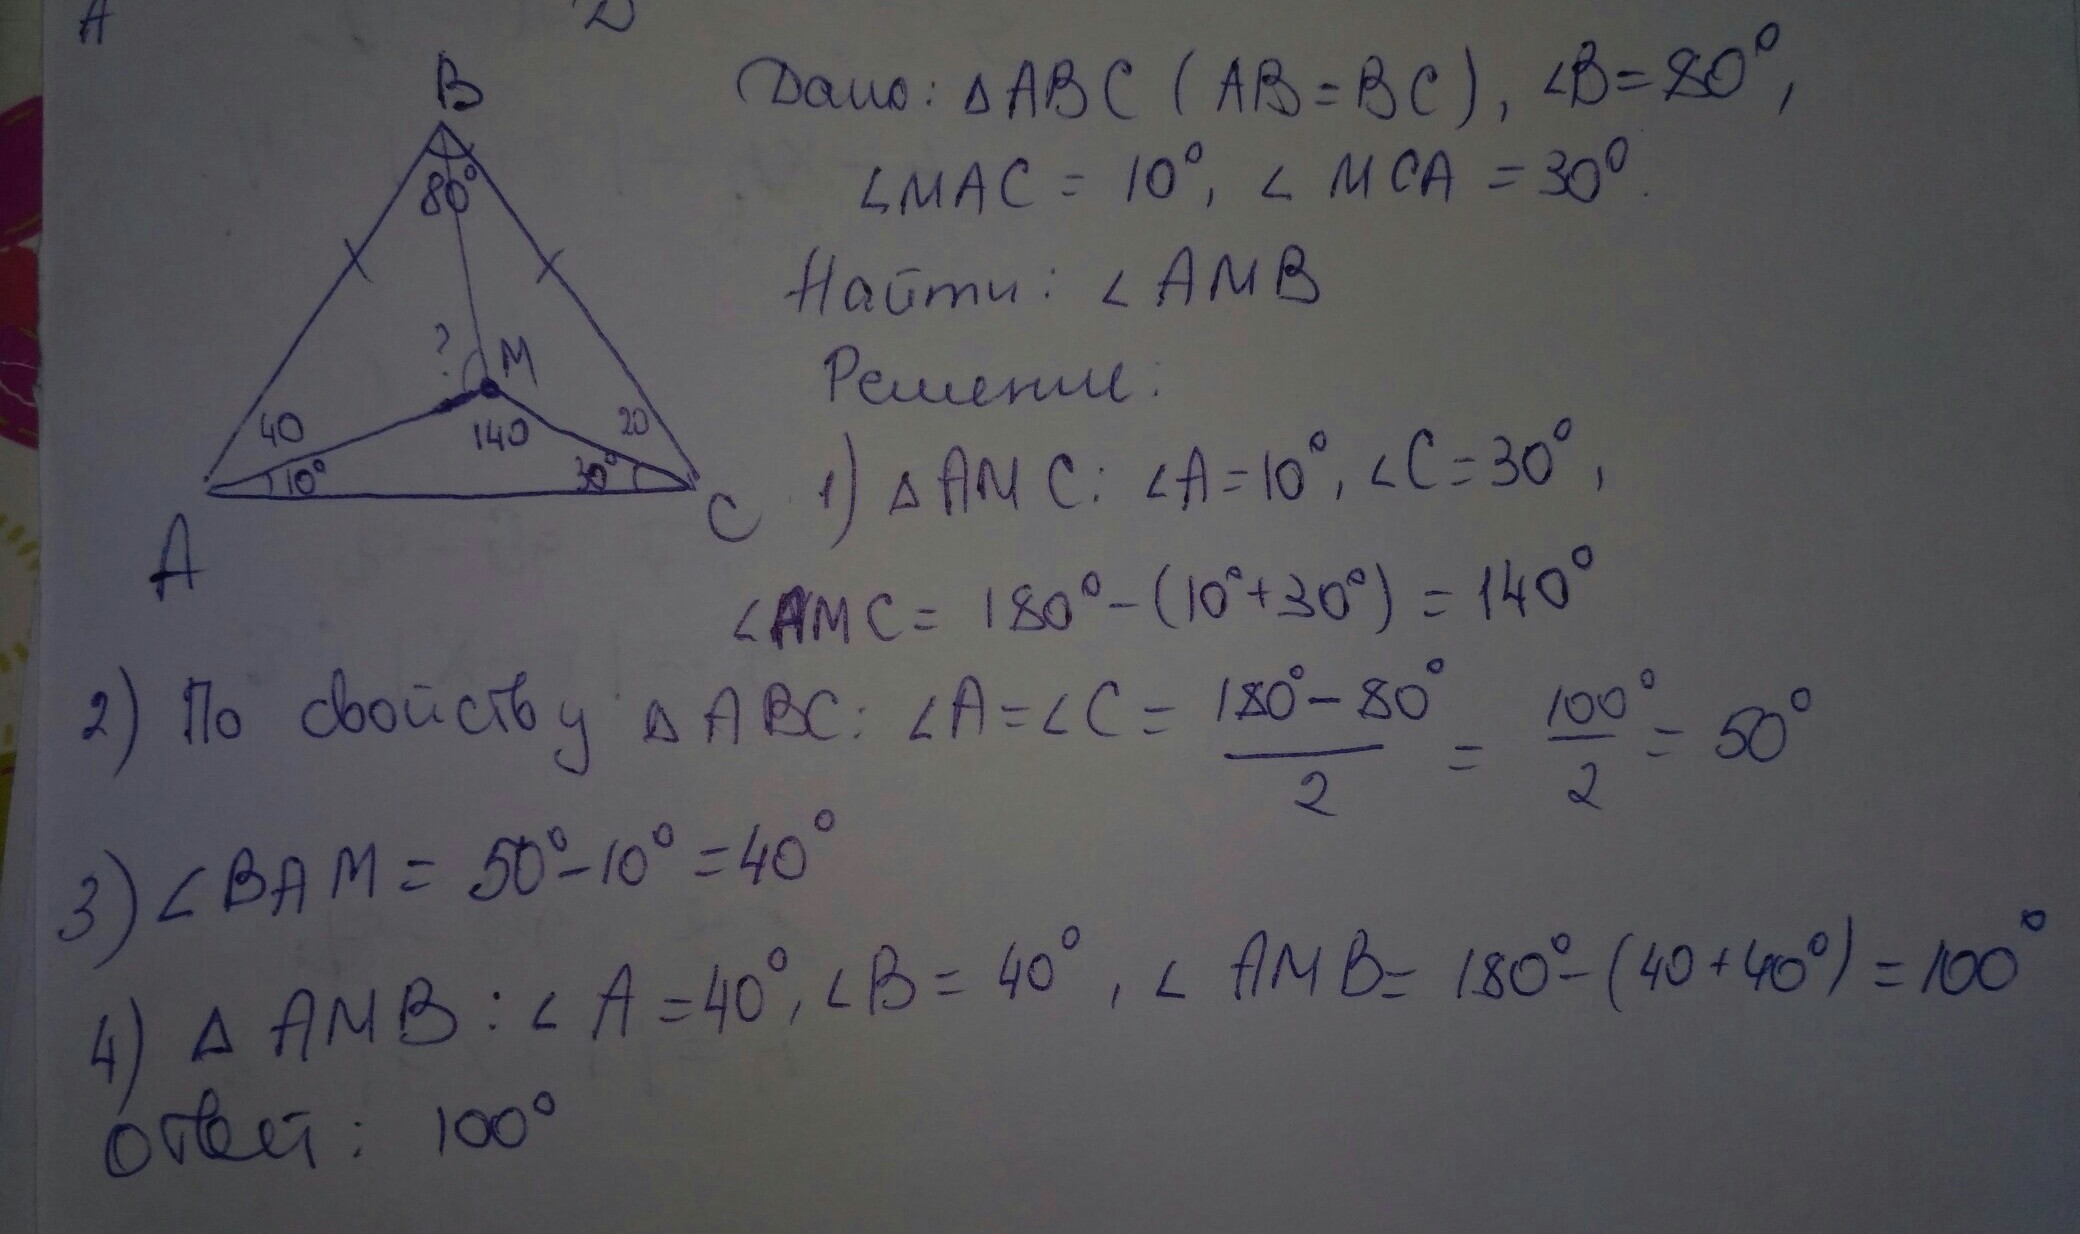 A
D
B
80°
? M
40 140 20
10° 30°
A C
Дано: △ABC (AB=BC), ∠B=80°,
∠MAC = 10°, ∠MCA = 30°.
Найти: ∠AMB
Решение:
1) △AMC: ∠A=10°, ∠C=30°,
∠AMC = 180°-(10°+30°) = 140°
2) По свойству △ABC: ∠A=∠C= 180°-80°/2 = 100°/2 = 50°
3) ∠BAM = 50°-10° =40°
4) △AMB: ∠A=40°, ∠B= 40°, ∠AMB= 180°-(40+40°) = 100°
Ответ: 100°